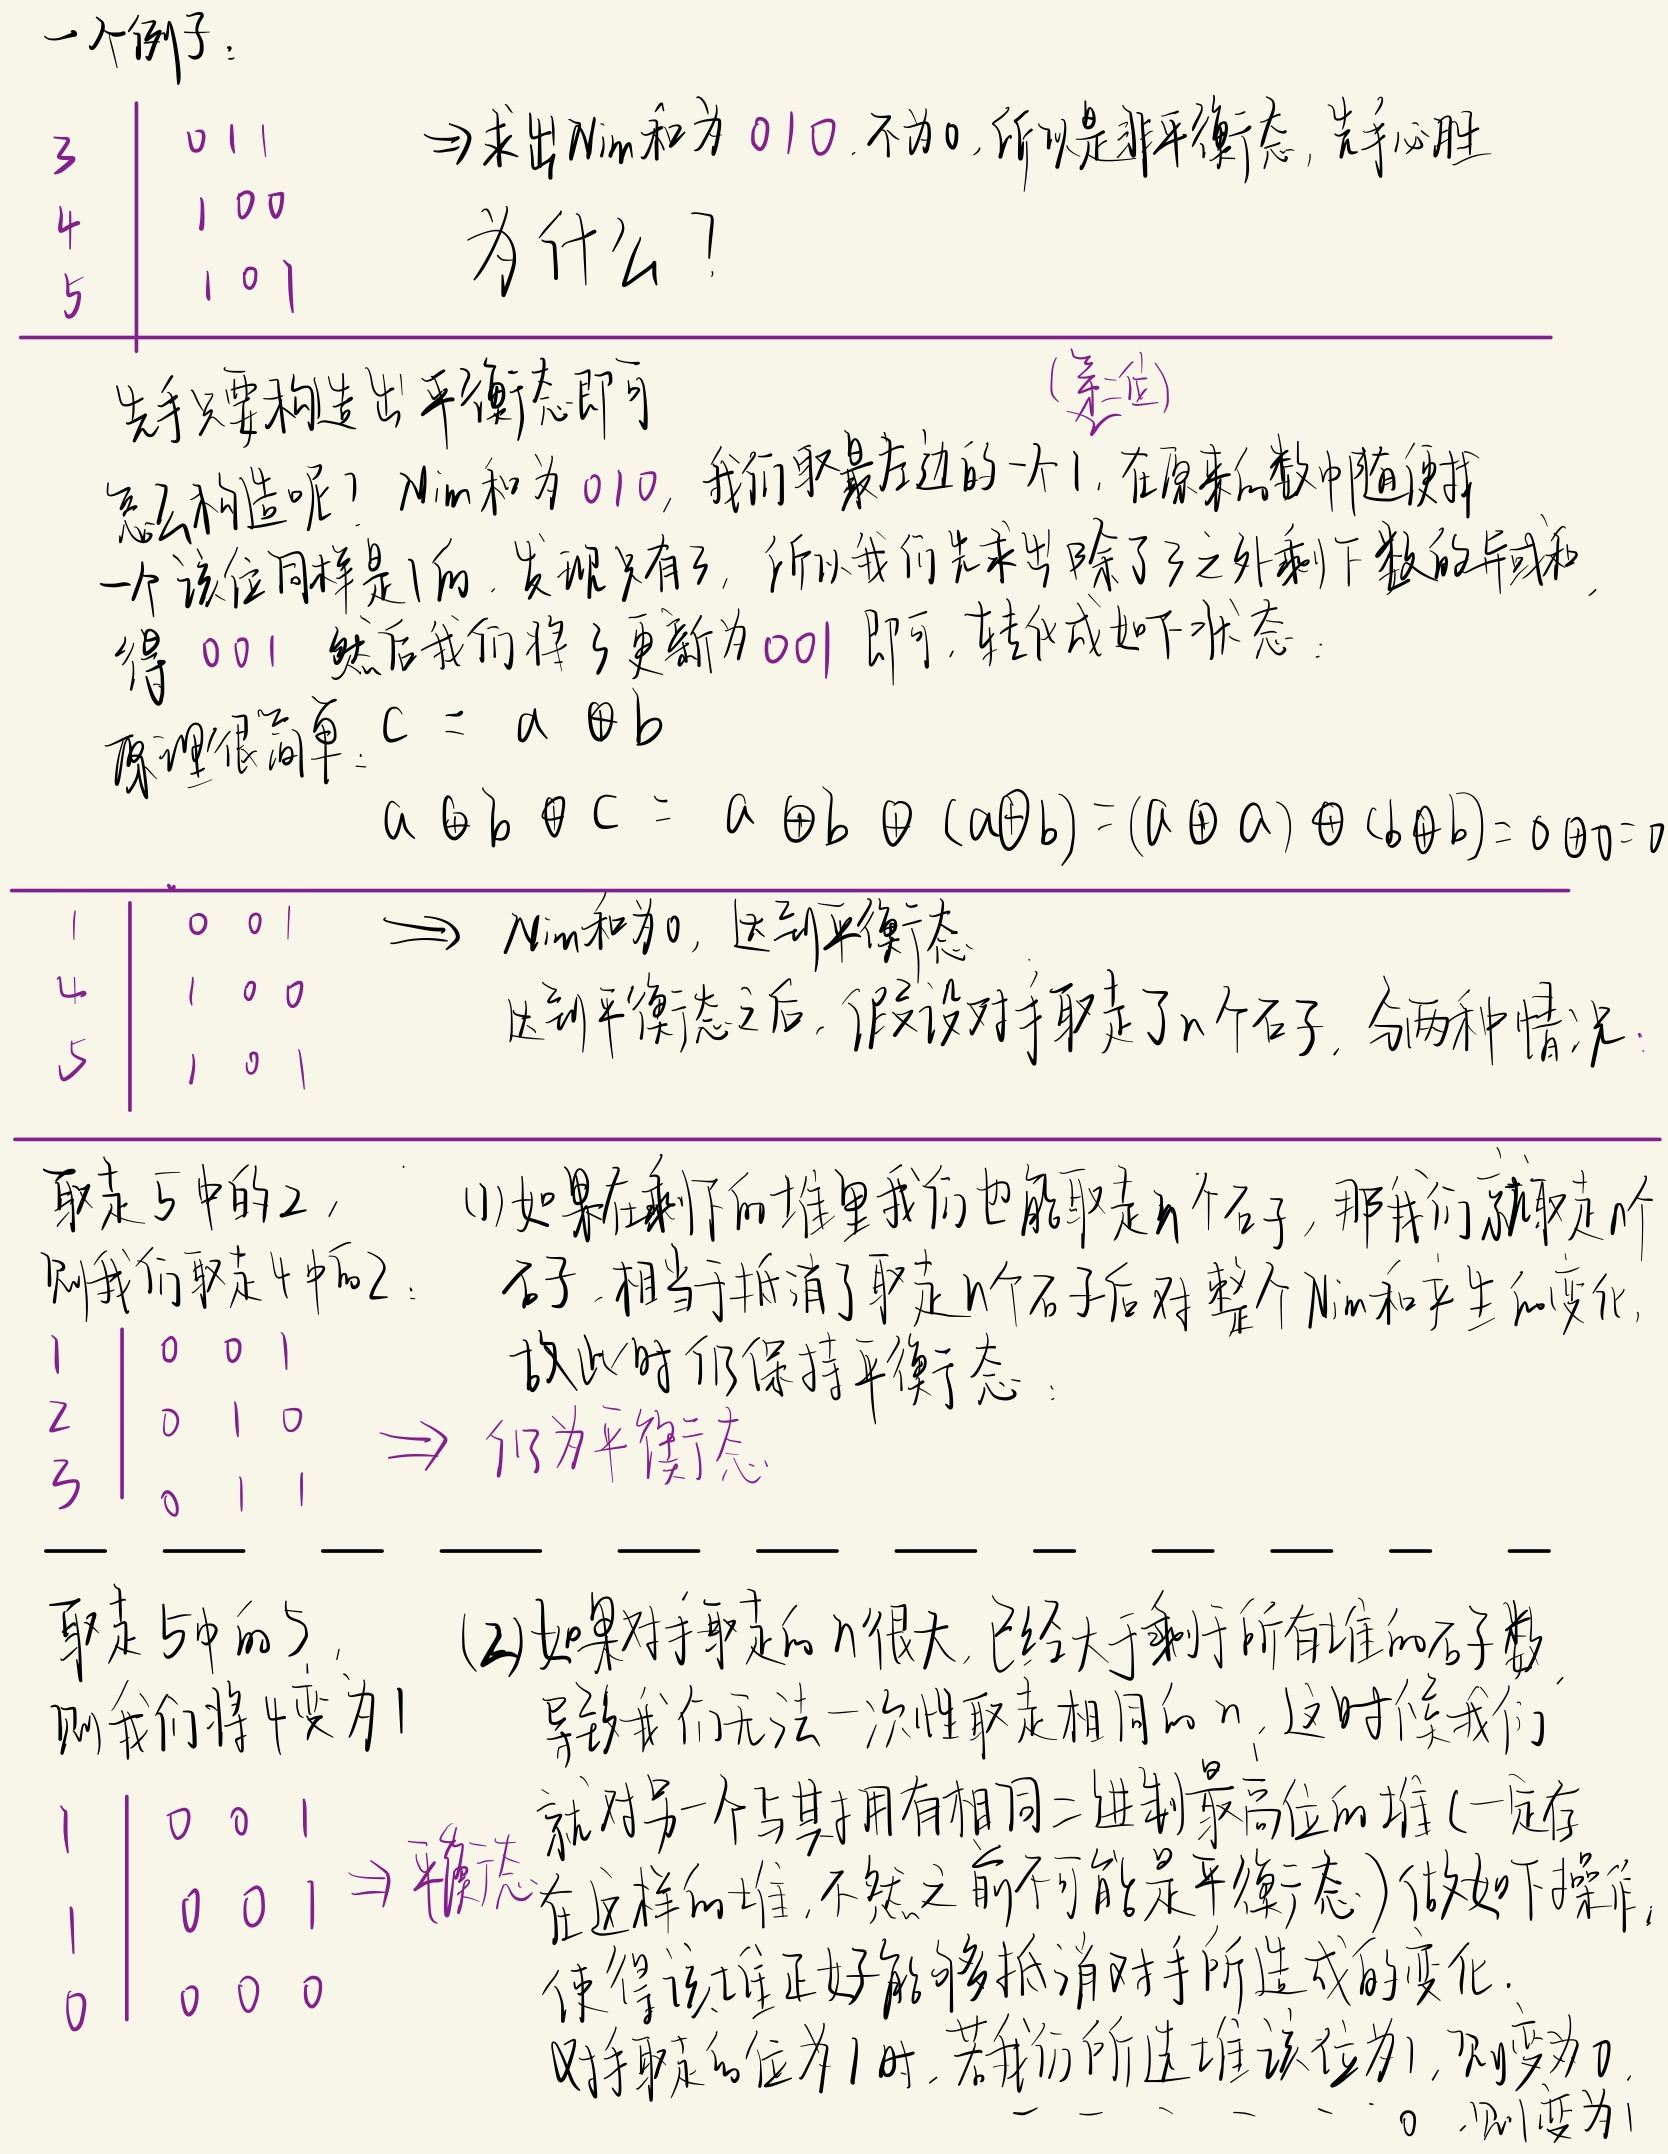 一个例子：
3 | 011 ⇒求出Nim和为 010. 不为0, 所以是非平衡态, 先手必胜
4 | 100 为什么?
5 | 101
先手只要构造出平衡态即可
(第二位)
怎么构造呢? Nim和为 010, 我们取最左边的一个1, 在原来的数中随便找
一个该位同样是1的. 发现只有3, 所以我们先求出除了3之外剩下数的异或和,
得 001 然后我们将3更新为001即可, 转化成如下状态:
原理很简单: c = a ⊕ b
a ⊕ b ⊕ c = a ⊕ b ⊕ (a⊕b) = (a ⊕ a) ⊕ (b⊕b) = 0⊕0=0
1 | 001 ⇒ Nim和为0, 达到平衡态
4 | 100 达到平衡态之后, 假设对手取走了n个石子, 分两种情况:
5 | 101
取走5中的2,
则我们取走4中的2:
1 | 001
2 | 010
3 | 011
(1)如果在剩下的堆里我们也能取走n个石子, 那我们就取走n个
石子, 相当于抵消了取走n个石子后对整个Nim和产生的变化,
故此时仍保持平衡态:
⇒ 仍为平衡态
取走5中的5,
则我们将4变为1
1 | 001
1 | 001 ⇒平衡态
0 | 000
(2)如果对手取走的n很大, 已经大于剩于所有堆的石子数,
导致我们无法一次性取走相同的n, 这时候我们
就对另一个与其拥有相同二进制最高位的堆(一定存
在这样的堆, 不然之前不可能是平衡态)做如下操作,
使得该堆正好能够抵消对手所造成的变化.
对手取走的位为1时, 若我们所选堆该位为1, 则变为0,
- - - - - 0, 则变为1